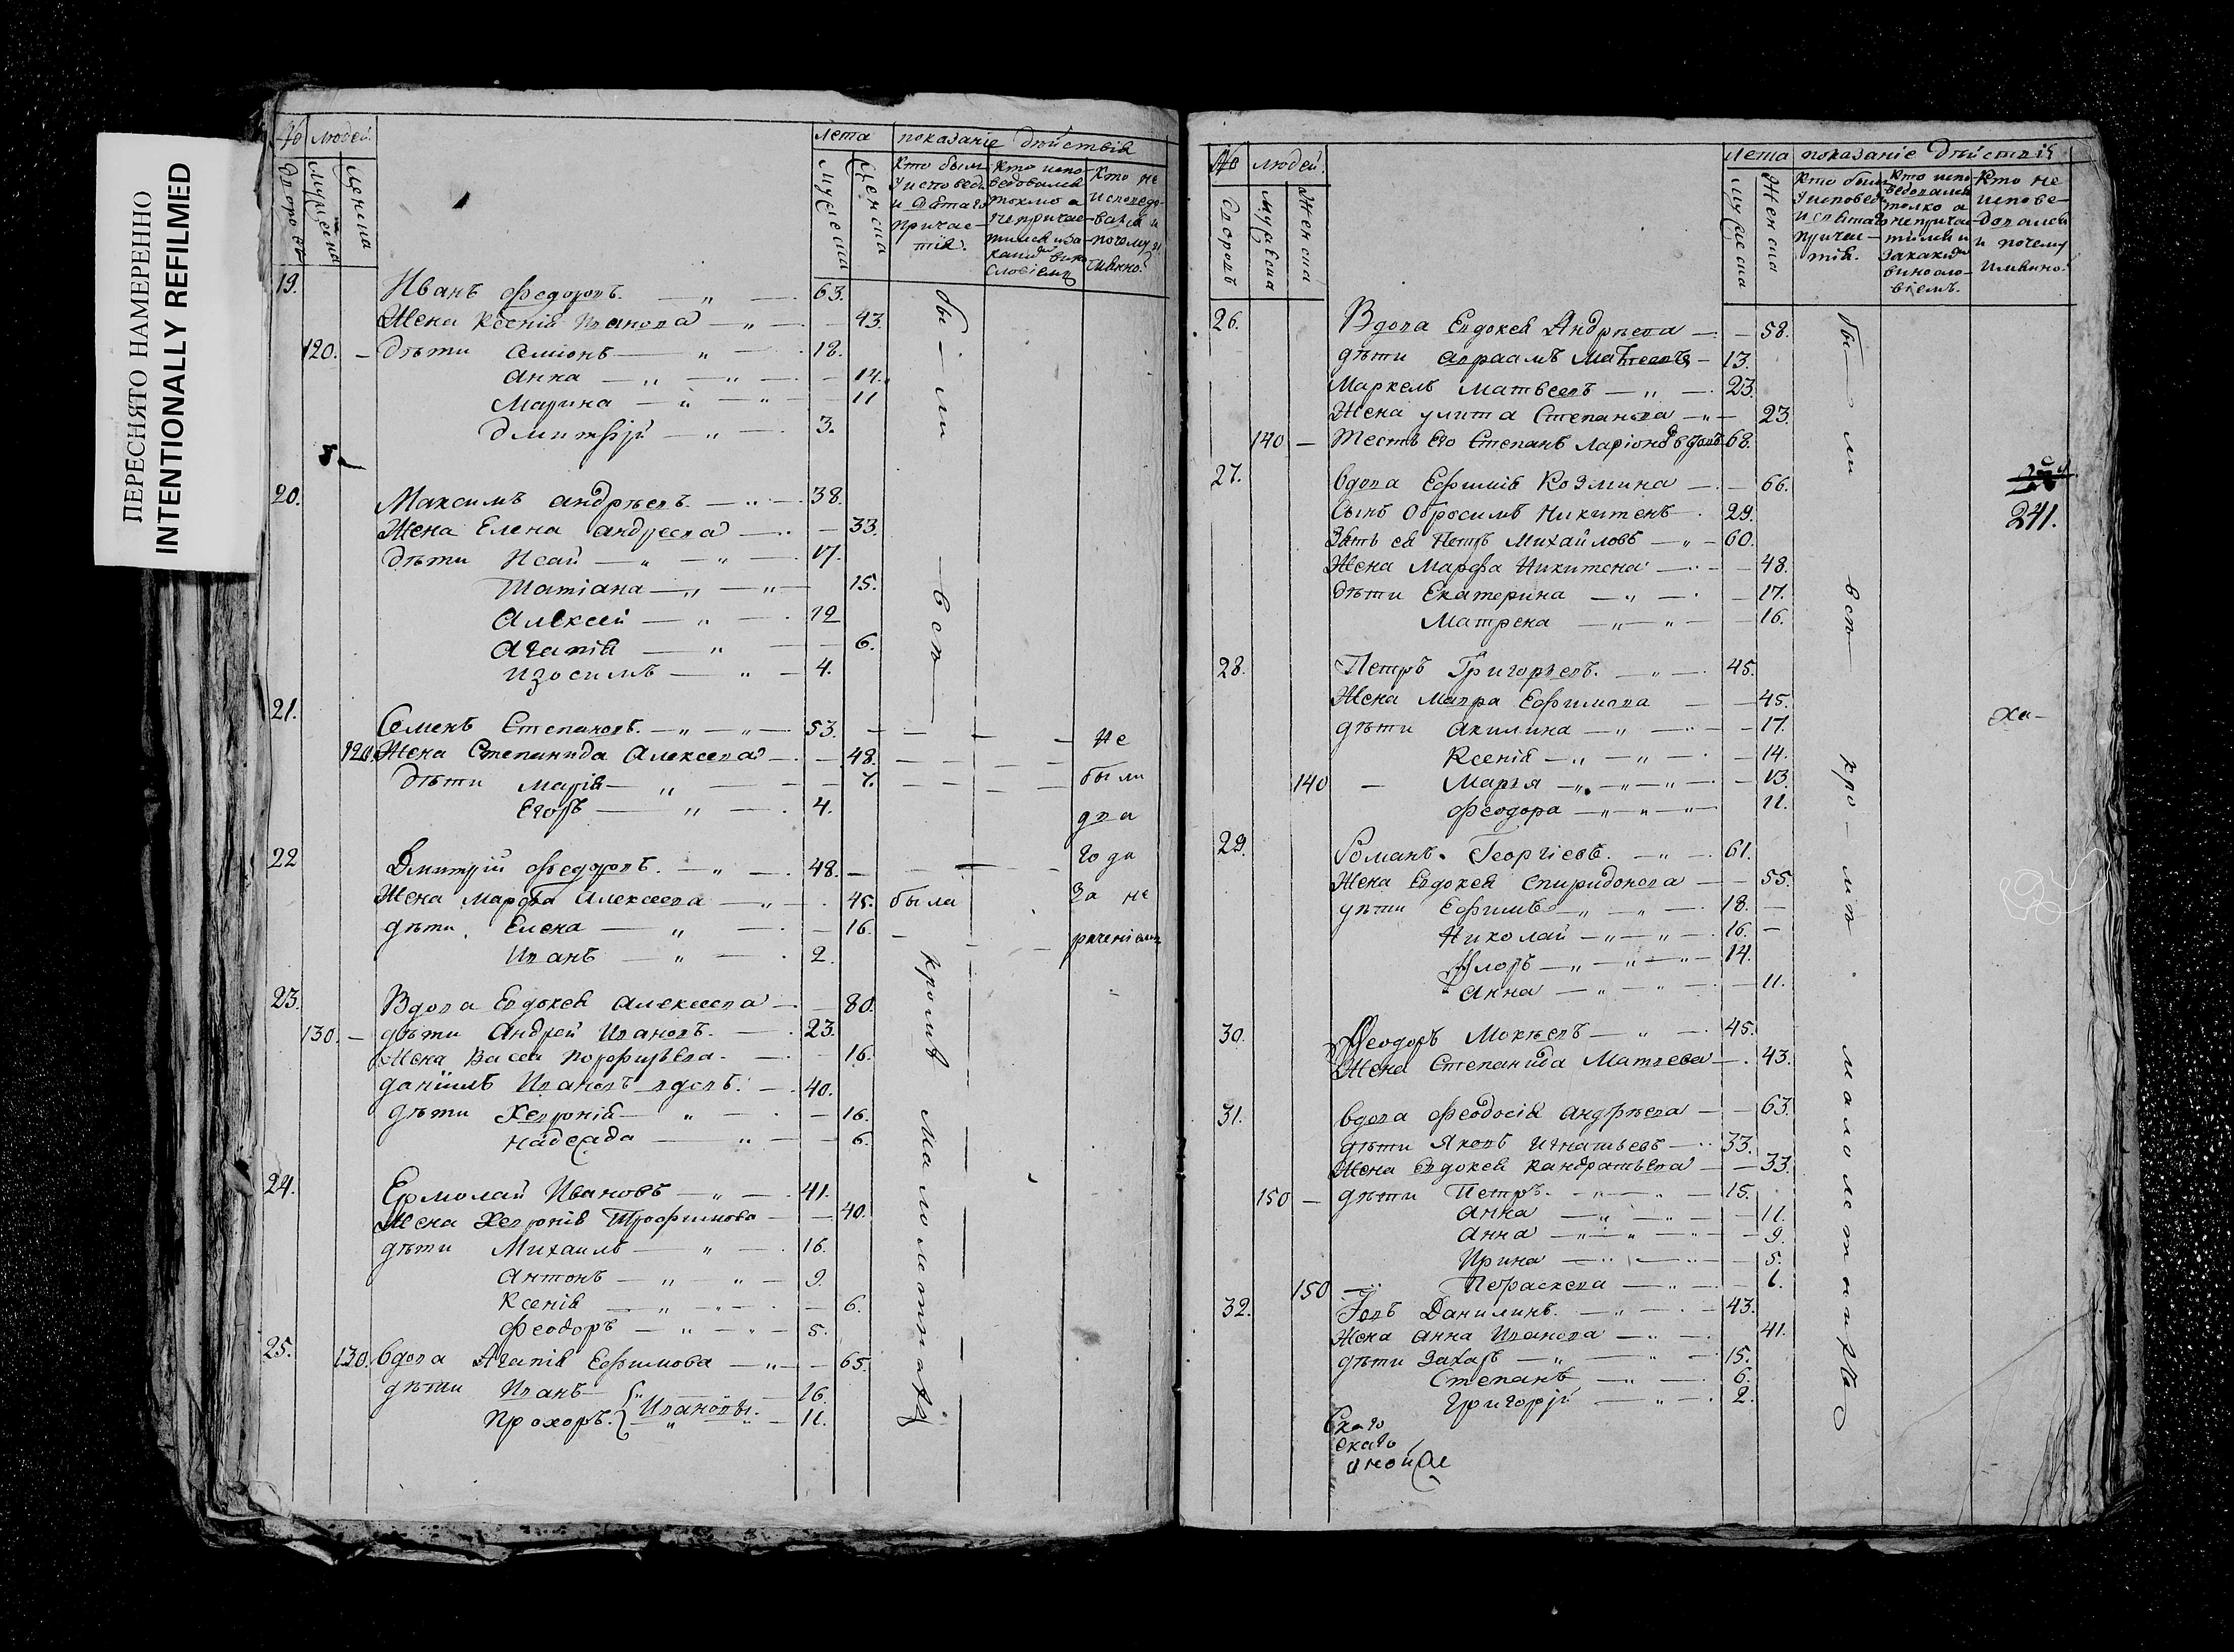 ПЕРЕСНЯТО НАМЕРЕННО
INTENTIONALLY REFILMED
№ людей. лета показаніе дѣйствія
дворовъ мужеска женска мужеска женска
Кто был у исповеди и святаго причастія.
Кто исповедовался токмо а не причастился и за каким винословіем
Кто не исповедовался и почему именно.
19. Иванъ Федоровъ. 63.
Жена Ксенія Иванова 43.
120. дѣти Семионъ 12.
Анна 14.
Марина 11
Дмитрій 3.
20. Максимъ Андрѣевъ. 38.
Жена Елена Андреева 33.
дѣти Исай 17.
Татіана 15.
Алексей 12
Агапія 6.
Изосимъ 4.
21. Семенъ Степановъ. 53.
120. Жена Степанида Алексеева 48.
дѣти Марія 7.
Егоръ 4.
22 Дмитрій Федоровъ. 48.
Жена Марфа Алексеева 45. была
дѣти Елена 16.
Иванъ 2.
23. Вдова Евдокея Алексеева 80.
130. дѣти Андрей Ивановъ. 23.
Жена Васса 16.
Даніилъ Ивановъ вдовъ. 40.
дѣти Хевронія 16.
Надежда 6.
24. Ермолай Ивановъ 41.
Жена Хевронія Трофимова 40.
дѣти Михаилъ 16.
Антонъ 9.
Ксенія 6.
Феодоръ 5.
25. 130. вдова Агапія Ефимова 65.
дѣти Иванъ 16.
Прохоръ. Ивановы. 11.
бы-ли
всѣ
кромѣ
малолетнихъ
не
были
два
года
за не
рачениемъ
№ людей. лета показаніе дѣйствія
дворовъ мужеска женска мужеска женска
Кто был у исповеди и святаго причастія.
Кто исповедовался толко а не причастился и за каким винословіемъ.
Кто не исповедовался и почему именно.
26. Вдова Евдокея Андрѣева 58.
дѣти Авраамъ Матвеевъ 13.
Маркелъ Матвеевъ 23.
Жена Улита Степанова 23.
140 Тесть Его Степанъ Ларіоновъ вдовъ 68.
27. вдова Ефимія Козмина 66.
Сынъ Обросимъ Никитенъ 29.
Зять ея Петръ Михайловъ 60.
Жена Марфа Никитена 48.
дѣти Екатерина 17.
Матрена 16.
28. Петръ Григорьевъ. 45.
Жена Мавра Ефимова 45.
дѣти Акилина 17.
Ксенія 14.
140 Марья 13.
Феодора 11.
29. Романъ Георгіевъ. 61.
Жена Евдокея Спиридонова 55.
дѣти Ефимъ 18.
Николай 16.
Флоръ 14.
Анна 11.
30. Феодоръ Мокѣевъ 45.
Жена Степанида Матвева 43.
31. вдова Феодосія Андрѣева 63.
дѣти Яковъ Игнатьевъ 33.
Жена Евдокея Кандратьева 33.
150 дѣти Петръ 15.
Анна 11.
Анна 9.
Ирина 5.
150 Петраскева 1.
32. Іовъ Данилинъ. 43.
Жена Анна Иванова 41.
дѣти Захаръ 15.
Степанъ 6.
Григорій 2.
бы-ли
всѣ
кро-мѣ
малолетнихъ
241.